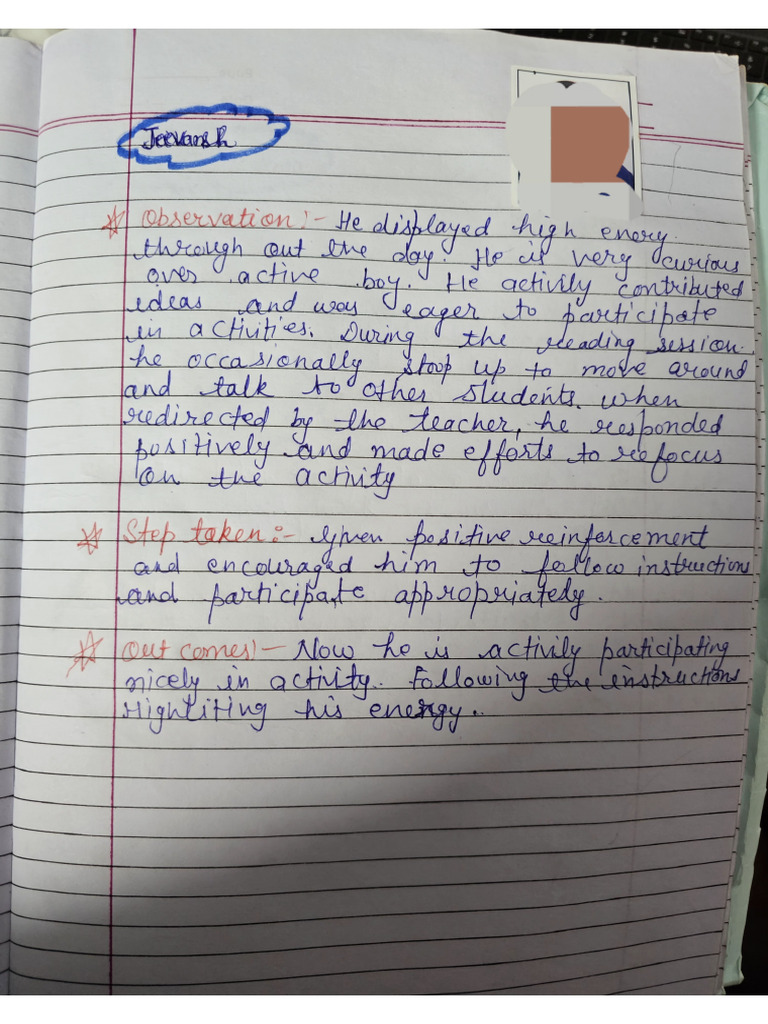 Jeevansh
☆ Observation:- He displayed high enery
through out the day. He is very curious
over active boy. He activily contributed
ideas and was eager to participate
in activities. During the reading session
he occasionally stoop up to move around
and talk to other students. When
redirected by the teacher, he responded
positively and made efforts to refocus
on the activity
☆ Step taken:- Given positive reinforcement
and encouraged him to follow instructions
and participate appropriately.
☆ Out comes:- Now he is activily participating
nicely in activity. Following the instructions
Hightiting his energy..